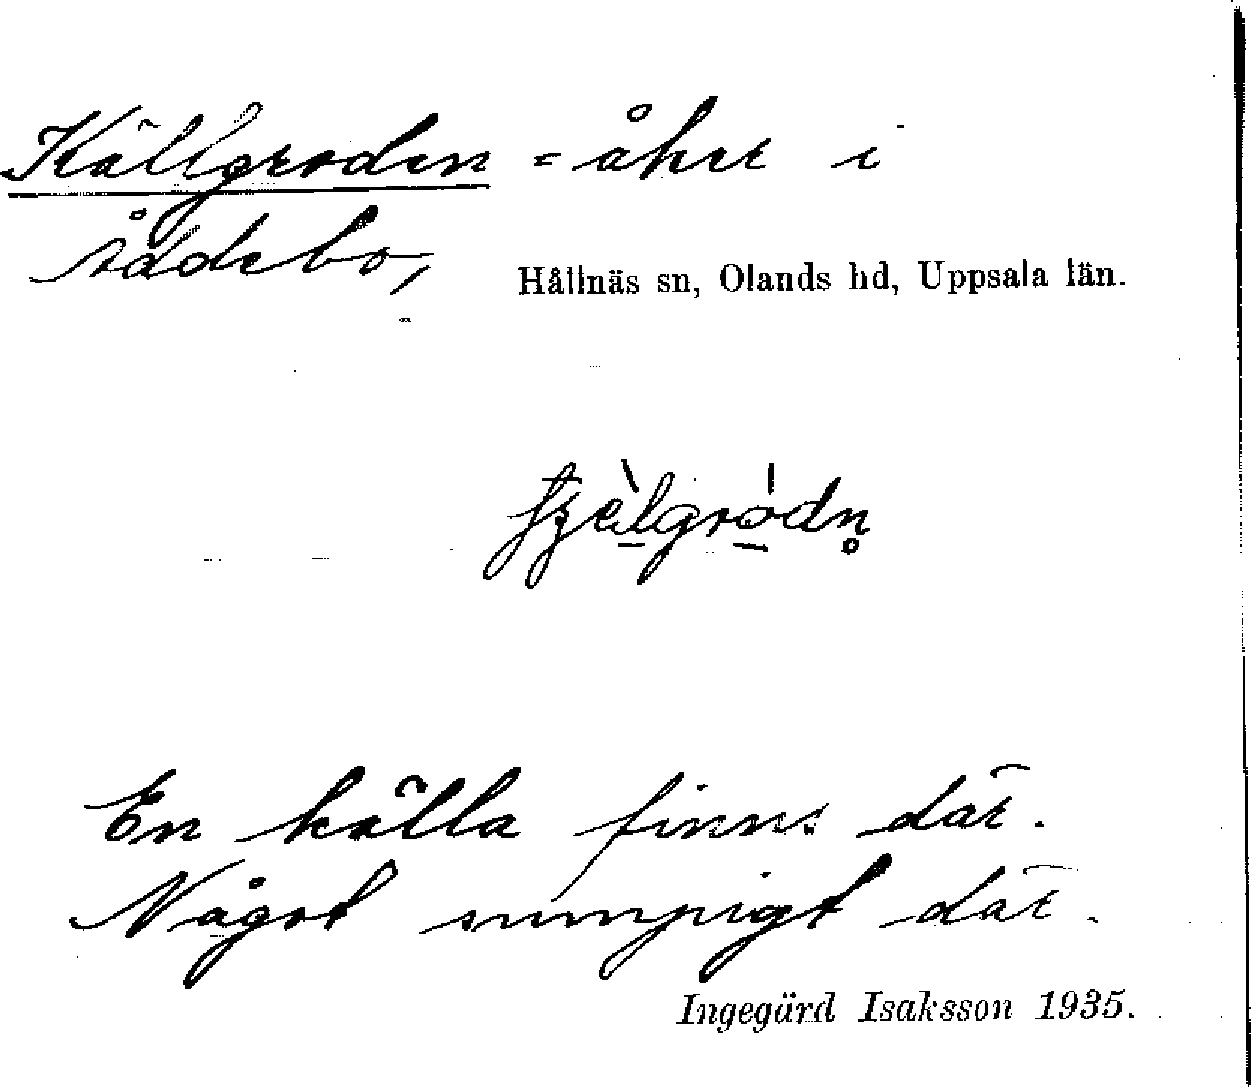 Källgroden = åker i
Hållnäs sn, Olands hd, Uppsala län.
En källa finns där.
Något sumpigt där.
Ingegärd Isaksson 1935.